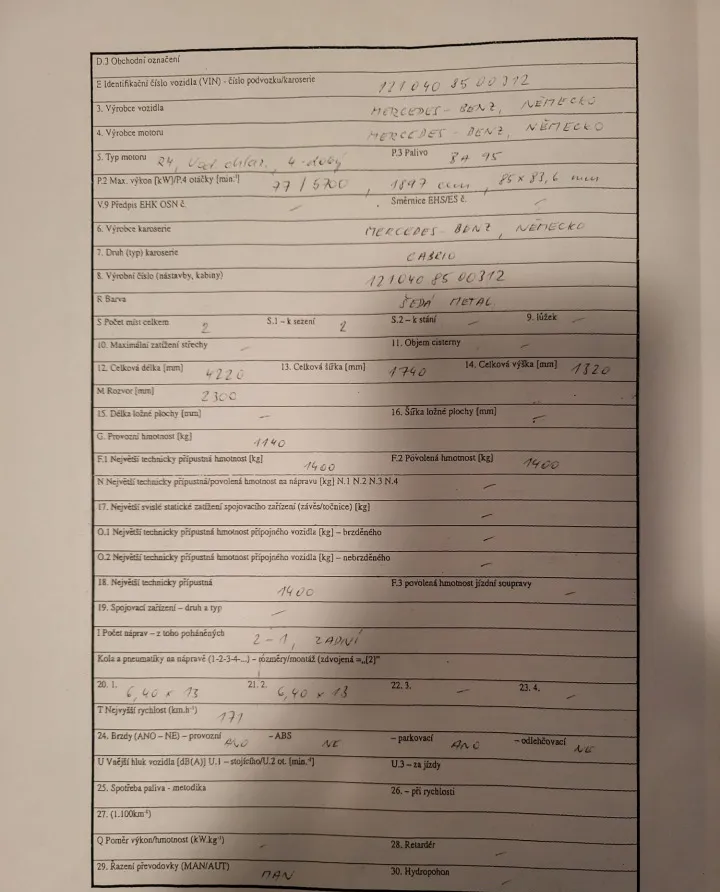 D.3 Obchodní označení
E Identifikační číslo vozidla (VIN) - číslo podvozku/karoserie 121 040 85 00312
3. Výrobce vozidla MERCEDES - BENZ, NĚMECKO
4. Výrobce motoru MERCEDES - BENZ, NĚMECKO
5. Typ motoru R4, vod. chlaz., 4-dobý P.3 Palivo BA 95
P.2 Max. výkon [kW]/P.4 otáčky [min.⁻¹] 77 / 5700 , 1897 ccm , 85 x 83,6 mm
V.9 Předpis EHK OSN č. – Směrnice EHS/ES č. –
6. Výrobce karoserie MERCEDES - BENZ, NĚMECKO
7. Druh (typ) karoserie CABRIO
8. Výrobní číslo (nástavby, kabiny) 121 040 85 00312
R Barva ŠEDÁ METAL
S Počet míst celkem 2 S.1 – k sezení 2 S.2 – k stání – 9. lůžek –
10. Maximální zatížení střechy – 11. Objem cisterny –
12. Celková délka [mm] 4220 13. Celková šířka [mm] 1740 14. Celková výška [mm] 1320
M Rozvor [mm] 2300
15. Délka ložné plochy [mm] – 16. Šířka ložné plochy [mm] –
G. Provozní hmotnost [kg] 1140
F.1 Největší technicky přípustná hmotnost [kg] 1400 F.2 Povolená hmotnost [kg] 1400
N Největší technicky přípustná/povolená hmotnost na nápravu [kg] N.1 N.2 N.3 N.4 –
17. Největší svislé statické zatížení spojovacího zařízení (závěs/točnice) [kg] –
O.1 Největší technicky přípustná hmotnost přípojného vozidla [kg] – brzděného –
O.2 Největší technicky přípustná hmotnost přípojného vozidla [kg] – nebrzděného –
18. Největší technicky přípustná 1400 F.3 povolená hmotnost jízdní soupravy –
19. Spojovací zařízení – druh a typ –
I Počet náprav – z toho poháněných 2 - 1, ZADNÍ
Kola a pneumatiky na nápravě (1-2-3-4-...) – rozměry/montáž (zdvojená =„[2]"
20. 1. 6,40 x 13 21. 2. 6,40 x 13 22. 3. – 23. 4. –
T Nejvyšší rychlost (km.h⁻¹) 171
24. Brzdy (ANO – NE) – provozní ANO – ABS NE – parkovací ANO – odlehčovací NE
U Vnější hluk vozidla [dB(A)] U.1 – stojícího/U.2 ot. [min.⁻¹] U.3 – za jízdy
25. Spotřeba paliva - metodika 26. – při rychlosti
27. (l.100km⁻¹)
Q Poměr výkon/hmotnost (kW.kg⁻¹) – 28. Retardér –
29. Řazení převodovky (MAN/AUT) MAN 30. Hydropohon –